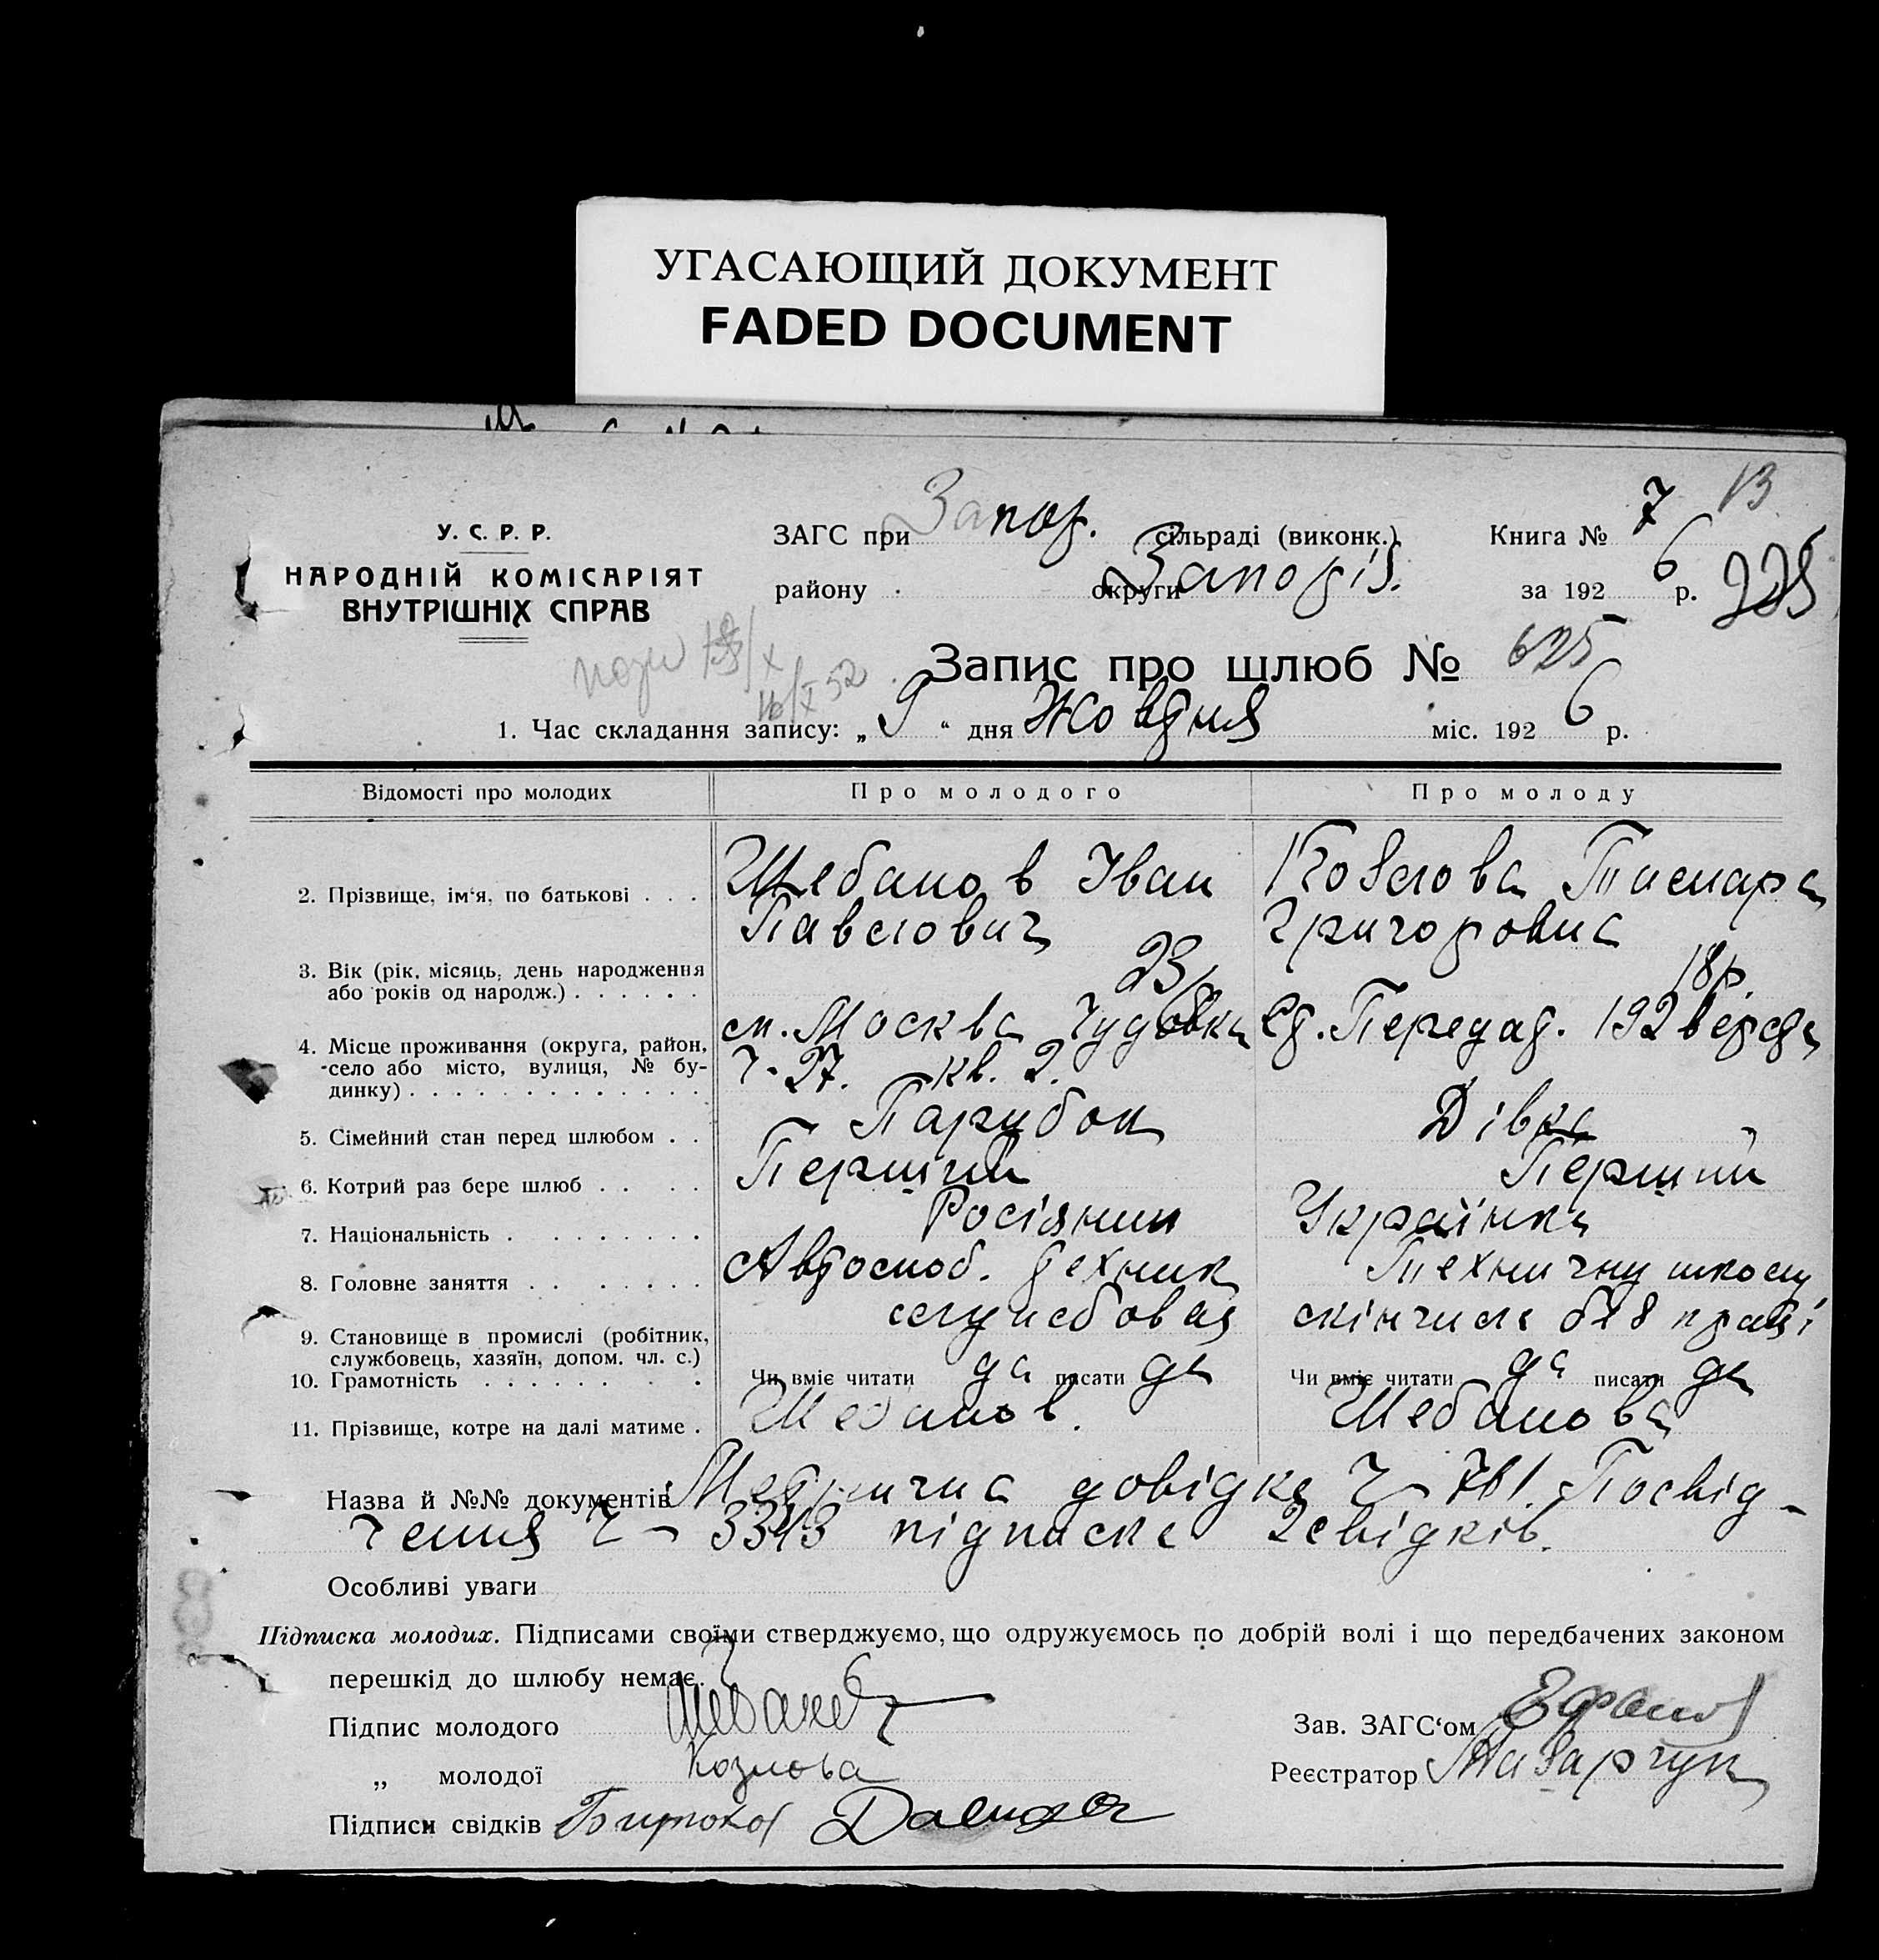 УГАСАЮЩИЙ ДОКУМЕНТ
FADED DOCUMENT
13
У. С. Р. Р.
НАРОДНІЙ КОМІСАРІЯТ
ВНУТРІШНІХ СПРАВ
ЗАГС при Запор. сільраді (виконк.) Книга № 7
району округи Запоріз. за 192 6 р. 225
Запис про шлюб № 625
1. Час складання запису: „ 9 “ дня Жовтня міс. 192 6 р.
Відомості про молодих Про молодого Про молоду
2. Прізвище, ім‘я, по батькові . . . Шебанов Іван Козлова Тамара
Павлович Григоровна
3. Вік (рік, місяць, день народження
або років од народж.) . . . . . . 23р. 18р.
4. Місце проживання (округа, район,
село або місто, вулиця, № бу-
динку) . . . . . . . . . . . . м. Москва Ст. Передат. 192 верста
ч. 27. кв. 2.
5. Сімейний стан перед шлюбом . . Парубок Дівка
6. Котрий раз бере шлюб . . . . Перший Перший
7. Національність . . . . . . . . Росіянин Українка
8. Головне заняття . . . . . . . Автомоб. техник Техничну школу
9. Становище в промислі (робітник,
службовець, хазяїн, допом. чл. с.) службовец скінчила без праці
10. Грамотність . . . . . . . Чи вміє читати да писати да Чи вміє читати да писати да
11. Прізвище, котре на далі матиме . Шебанов. Шебанова
Назва й №№ документів Метрична довідка Ч- 761. Посвід-
чення Ч- 3343 підписка 2 свідків.
Особливі уваги
Підписка молодих. Підписами своїми стверджуємо, що одружуємось по добрій волі і що передбачених законом
перешкід до шлюбу немає.
Підпис молодого Шебанов Зав. ЗАГС‘ом
„ молодої Козлова Реєстратор Назарчук
Підписи свідків